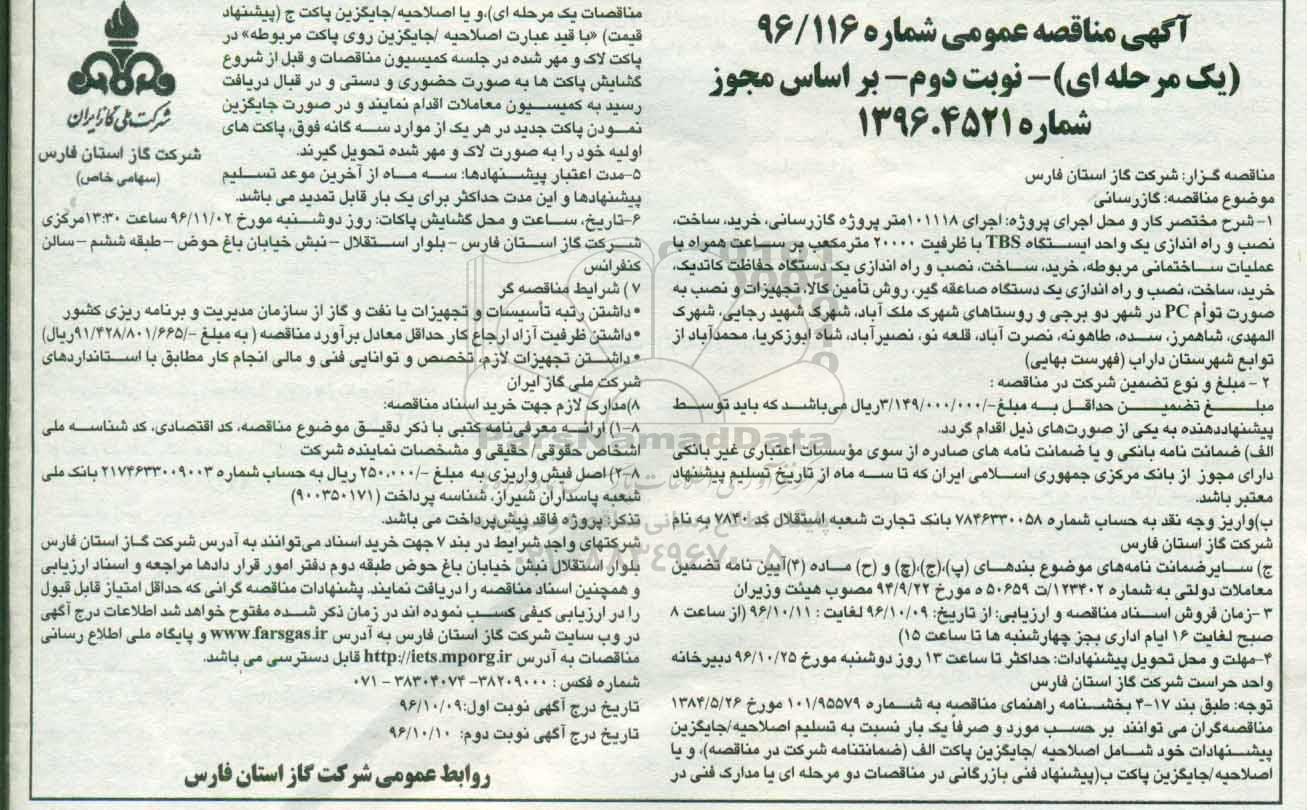 آگهی مناقصه عمومی شماره ۹۶/۱۱۶
(یک مرحله ای)- نوبت دوم- بر اساس مجوز
شماره ۱۳۹۶.۴۵۲۱
مناقصه گزار: شرکت گاز استان فارس
موضوع مناقصه: گازرسانی
۱- شرح مختصر کار و محل اجرای پروژه: اجرای ۱۰۱۱۱۸متر پروژه گازرسانی، خرید، ساخت،
نصب و راه اندازی یک واحد ایستگاه TBS با ظرفیت ۲۰۰۰۰ مترمکعب بر ساعت همراه با
عملیات ساختمانی مربوطه، خرید، ساخت، نصب و راه اندازی یک دستگاه حفاظت کاتدیک،
خرید، ساخت، نصب و راه اندازی یک دستگاه صاعقه گیر، روش تأمین کالا، تجهیزات و نصب به
صورت توأم PC در شهر دو برجی و روستاهای شهرک ملک آباد، شهرک شهید رجایی، شهرک
المهدی، شاهمرز، سده، طاهونه، نصرت آباد، قلعه نو، نصیرآباد، شاه ابوزکریا، محمدآباد از
توابع شهرستان داراب (فهرست بهایی)
۲ - مبلغ و نوع تضمین شرکت در مناقصه :
مبلغ تضمین حداقل به مبلغ-/۳/۱۴۹/۰۰۰/۰۰۰ریال می‌باشد که باید توسط
پیشنهاددهنده به یکی از صورت‌های ذیل اقدام گردد.
الف) ضمانت نامه بانکی و یا ضمانت نامه های صادره از سوی مؤسسات اعتباری غیر بانکی
دارای مجوز از بانک مرکزی جمهوری اسلامی ایران که تا سه ماه از تاریخ تسلیم پیشنهاد
معتبر باشد.
ب)واریز وجه نقد به حساب شماره ۷۸۴۶۳۳۰۰۵۸ بانک تجارت شعبه استقلال کد ۷۸۴۰ به نام
شرکت گاز استان فارس
ج) سایرضمانت نامه‌های موضوع بندهای (پ)،(ج)،(چ) و (ح) ماده (۴)آیین نامه تضمین
معاملات دولتی به شماره ۱۲۳۴۰۲/ت ۵۰۶۵۹ ه مورخ ۹۴/۹/۲۲ مصوب هیئت وزیران
۳ -زمان فروش اسناد مناقصه و ارزیابی: از تاریخ: ۹۶/۱۰/۰۹ لغایت : ۹۶/۱۰/۱۱ (از ساعت ۸
صبح لغایت ۱۶ ایام اداری بجز چهارشنبه ها تا ساعت ۱۵)
۴-مهلت و محل تحویل پیشنهادات: حداکثر تا ساعت ۱۳ روز دوشنبه مورخ ۹۶/۱۰/۲۵ دبیرخانه
واحد حراست شرکت گاز استان فارس
توجه: طبق بند ۱۷-۴ بخشنامه راهنمای مناقصه به شماره ۱۰۱/۹۵۵۷۹ مورخ ۱۳۸۴/۵/۲۶
مناقصه‌گران می توانند بر حسب مورد و صرفاً یک بار نسبت به تسلیم اصلاحیه/جایگزین
پیشنهادات خود شامل اصلاحیه /جایگزین پاکت الف (ضمانتنامه شرکت در مناقصه)، و یا
اصلاحیه/جایگزین پاکت ب(پیشنهاد فنی بازرگانی در مناقصات دو مرحله ای یا مدارک فنی در
مناقصات یک مرحله ای)،و یا اصلاحیه/جایگزین پاکت ج (پیشنهاد
قیمت) «با قید عبارت اصلاحیه /جایگزین روی پاکت مربوطه» در
پاکت لاک و مهر شده در جلسه کمیسیون مناقصات و قبل از شروع
گشایش پاکت ها به صورت حضوری و دستی و در قبال دریافت
رسید به کمیسیون معاملات اقدام نمایند و در صورت جایگزین
نمودن پاکت جدید در هر یک از موارد سه گانه فوق، پاکت های
اولیه خود را به صورت لاک و مهر شده تحویل گیرند.
شرکت ملی گاز ایران
شرکت گاز استان فارس
(سهامی خاص)
۵-مدت اعتبار پیشنهادها: سه ماه از آخرین موعد تسلیم
پیشنهادها و این مدت حداکثر برای یک بار قابل تمدید می باشد.
۶-تاریخ، ساعت و محل گشایش پاکات: روز دوشنبه مورخ ۹۶/۱۱/۰۲ ساعت ۱۳:۳۰مرکزی
شرکت گاز استان فارس -بلوار استقلال -نبش خیابان باغ حوض -طبقه ششم -سالن
کنفرانس
۷ ) شرایط مناقصه گر
• داشتن رتبه تأسیسات و تجهیزات یا نفت و گاز از سازمان مدیریت و برنامه ریزی کشور
• داشتن ظرفیت آزاد ارجاع کار حداقل معادل برآورد مناقصه ( به مبلغ -/۹۱/۴۲۸/۸۰۱/۶۶۵ریال)
• داشتن تجهیزات لازم، تخصص و توانایی فنی و مالی انجام کار مطابق با استانداردهای
شرکت ملی گاز ایران
۸)مدارک لازم جهت خرید اسناد مناقصه:
۸-۱) ارائه معرفی‌نامه کتبی با ذکر دقیق موضوع مناقصه، کد اقتصادی، کد شناسه ملی
اشخاص حقوقی/ حقیقی و مشخصات نماینده شرکت
۸-۲) اصل فیش واریزی به مبلغ -/۲۵۰،۰۰۰ ریال به حساب شماره ۲۱۷۴۶۳۳۰۰۹۰۰۳ بانک ملی
شعبه پاسداران شیراز، شناسه پرداخت (۹۰۰۳۵۰۱۷۱)
تذکر: پروژه فاقد پیش‌پرداخت می باشد.
شرکتهای واجد شرایط در بند ۷ جهت خرید اسناد می‌توانند به آدرس شرکت گاز استان فارس
بلوار استقلال نبش خیابان باغ حوض طبقه دوم دفتر امور قرار دادها مراجعه و اسناد ارزیابی
و همچنین اسناد مناقصه را دریافت نمایند. پشنهادات مناقصه گرانی که حداقل امتیاز قابل قبول
را در ارزیابی کیفی کسب نموده اند در زمان ذکر شده مفتوح خواهد شد اطلاعات درج آگهی
در وب سایت شرکت گاز استان فارس به آدرس www.farsgas.ir و پایگاه ملی اطلاع رسانی
مناقصات به آدرس http://iets.mporg.ir قابل دسترسی می باشد.
شماره فکس : ۳۸۲۰۹۰۰۰- ۳۸۳۰۴۰۷۴ - ۰۷۱
تاریخ درج آگهی نوبت اول:۹۶/۱۰/۰۹
تاریخ درج آگهی نوبت دوم: ۹۶/۱۰/۱۰
روابط عمومی شرکت گاز استان فارس
ParsNamadData